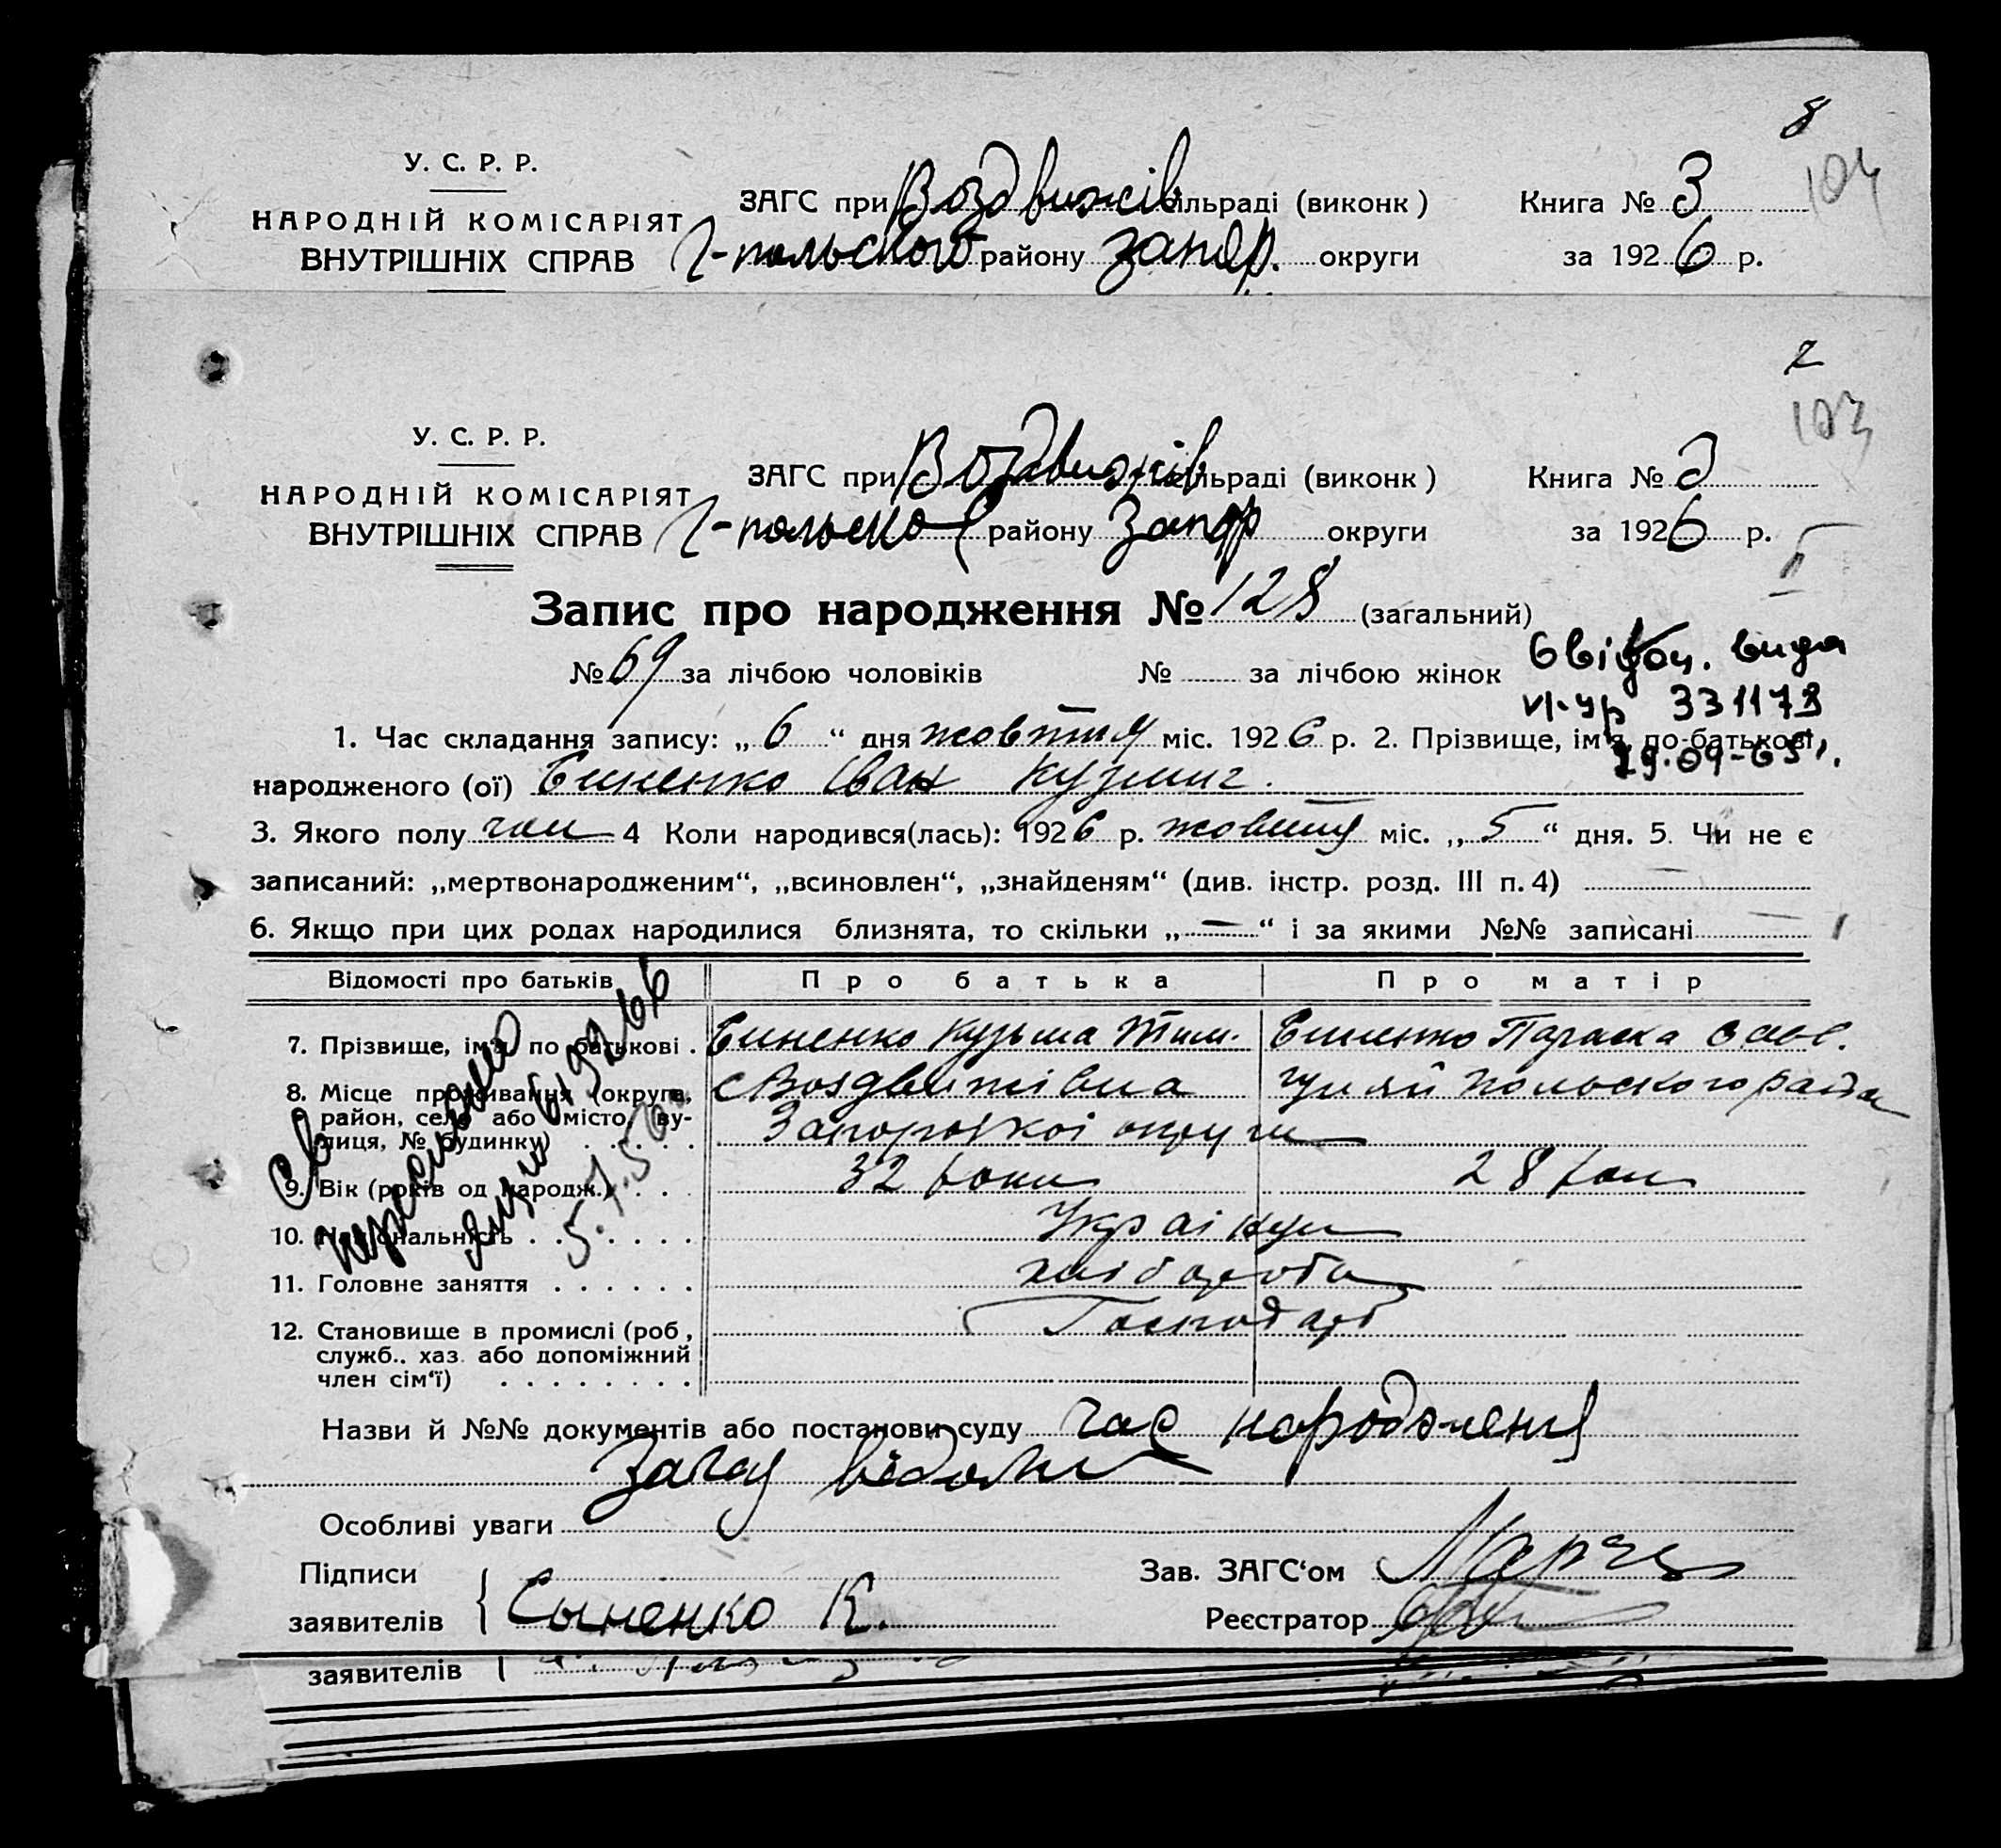 8
104
У. С. Р. Р.
НАРОДНІЙ КОМІСАРІЯТ
ВНУТРІШНІХ СПРАВ
ЗАГС при Воздвижів сільраді (виконк)
Г-польского району Запор. округи
Книга № 3
за 1926 р.
2
103
У. С. Р. Р.
НАРОДНІЙ КОМІСАРІЯТ
ВНУТРІШНІХ СПРАВ
ЗАГС при Воздвижів сільраді (виконк)
Г-польско району Запор округи
Книга № 3
за 1926 р.
Запис про народження № 128 (загальний)
№ 69 за лічбою чоловіків № за лічбою жінок
331173
1. Час складання запису: „ 6 “ дня жовтня міс. 1926 р. 2. Прізвище, ім'я, по-батькові,
29.09-65
народженого (ої) Синенко Іван Кузмич.
3. Якого полу чол 4 Коли народився(лась): 1926 р. жовтня міс. „ 5 “ дня. 5. Чи не є
записаний: „мертвонародженим“, „всиновлен“, „знайденям“ (див. інстр. розд. III п. 4) —
6. Якщо при цих родах народилися близнята, то скільки „ — “ і за якими №№ записані —
Відомості про батьків Про батька Про матір
7. Прізвище, ім'я, по батькові . Синенко Кузьма Тим. Синенко Параска Сав.
8. Місце проживання (округа, район, село або місто, вулиця, № будинку) с Воздвижівка гуляй польского рай
Запорожкоі округи
9. Вік (років од народж.) . . . 32 роки 28 рок
10. Національність . . . . . . . Украінці
11. Головне заняття . . . . . . хлібороби
12. Становище в промислі (роб, служб., хаз. або допоміжний член сім'ї) . . . . . . . . Господарі
Назви й №№ документів або постанови суду час народженя
Загсу відомий
Особливі уваги
Підписи
заявителів
Сыненко К.
Зав. ЗАГС'ом
Реєстратор
заявителів